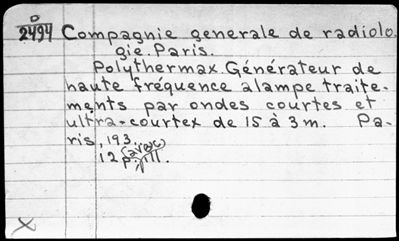 O
2494 Compagnie generale de radiolo.
gie. Paris.
Polythermax. Générateur de
haute fréquence a lampe traite-
ments par ondes courtes et
ultra-courtex de 15 à 3 m. Pa-
ris, 193.
(avec)
12 p. ill.
X